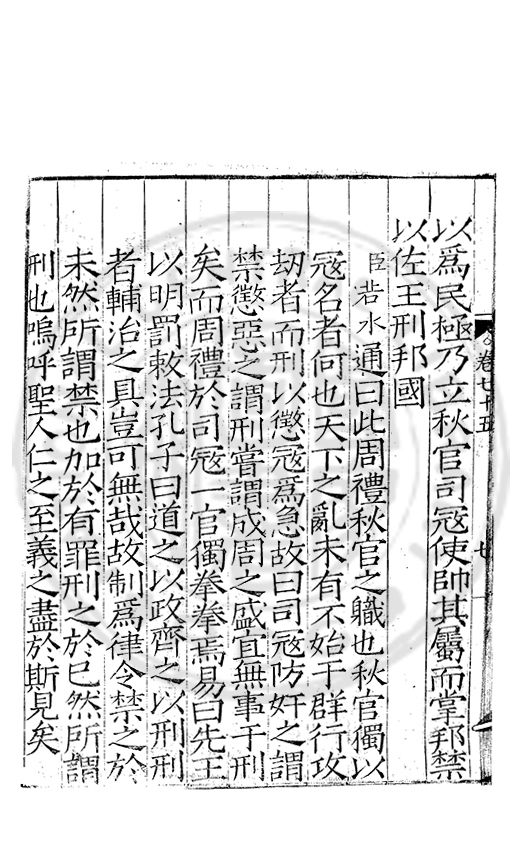 以爲民極乃立秋官司冦使帥其屬而掌邦禁
以佐王刑邦國
臣若水通曰此周禮秋官之職也秋官獨以
冦名者何也天下之亂未有不始于群行攻
刼者而刑以懲冦爲急故曰司冦防奸之謂
禁懲惡之謂刑嘗謂成周之盛宜無事于刑
矣而周禮於司冦一官獨拳拳焉易曰先王
以明罰敕法孔子曰道之以政齊之以刑刑
者輔治之具豈可無哉故制爲律令禁之於
未然所謂禁也加於有罪刑之於巳然所謂
刑也嗚呼聖人仁之至義之盡於斯見矣
卷七十五
七